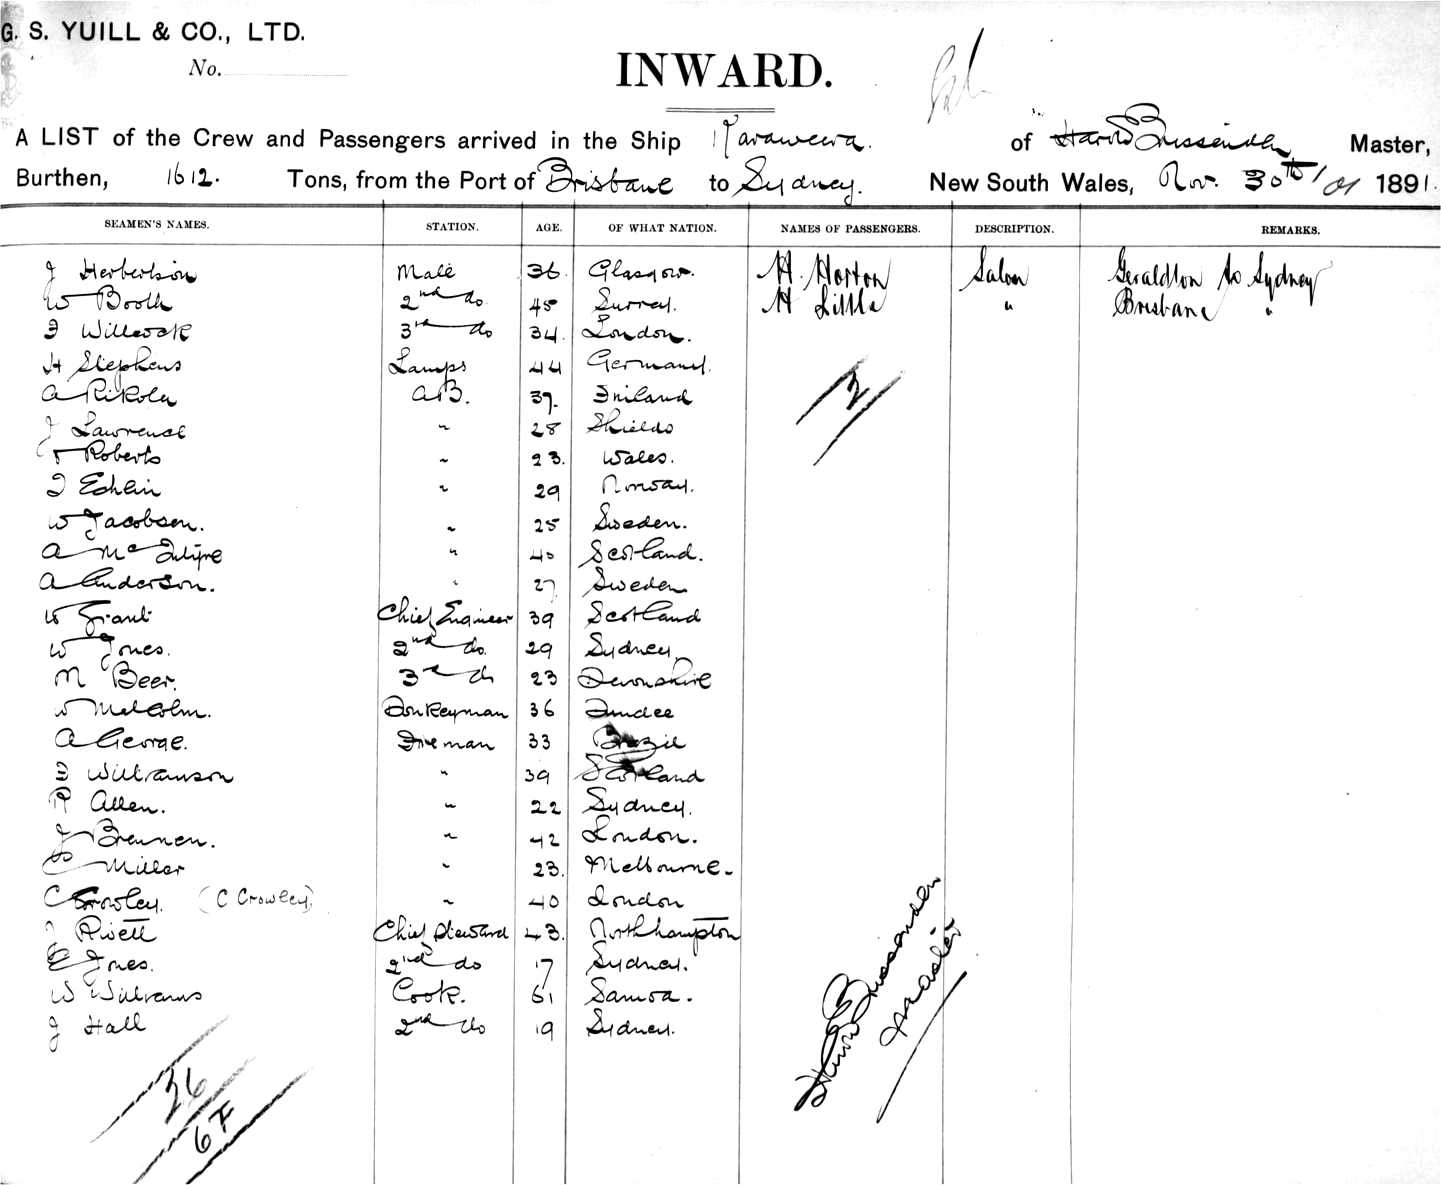 G. S. YUILL & CO., LTD.
No.
INWARD.
A LIST of the Crew and Passengers arrived in the Ship Karaweera of Harold Bussenden Master,
Burthen, 1612. Tons, from the Port of Brisbane to Sydney. New South Wales, Nov. 30th / 01 1891.
SEAMEN'S NAMES. STATION. AGE. OF WHAT NATION. NAMES OF PASSENGERS. DESCRIPTION. REMARKS.
J Herbertson Mate 36 Glasgow. H. Horton Saloon Geraldton to Sydney
W Booth 2nd do 45 Surrey. H Little " Brisbane "
F Willcock 3rd do 34 London.
H Stephens Lamps 44 Germany.
A Rikola A.B. 37. Finland
J Lawrence " 28 Shields
Roberts " 23. Wales.
Edhlin " 29 Norway.
W Jacobsen. " 25 Sweden.
A McIntyre " 40 Scotland.
A Anderson. " 27 Sweden
W Grant Chief Engineer 39 Scotland
W Jones. 2nd do. 29 Sydney.
M Beer. 3rd do 23 Devonshire
W Malcolm. Donkeyman 36 Dundee
A George. Fireman 33 Brazil
F Williamson " 39 Scotland
R Allen. " 22 Sydney.
J Brennen. " 42 London.
Miller " 23. Melbourne.
C Crowley. (C Crowley) " 40 London
Rivett Chief Steward 43. Northhampton
E Jones. 2nd do 17 Sydney.
W Williams Cook. 61 Samoa.
J Hall 2nd do 19 Sydney.
2
26
6 F
Harold Bussenden
Master